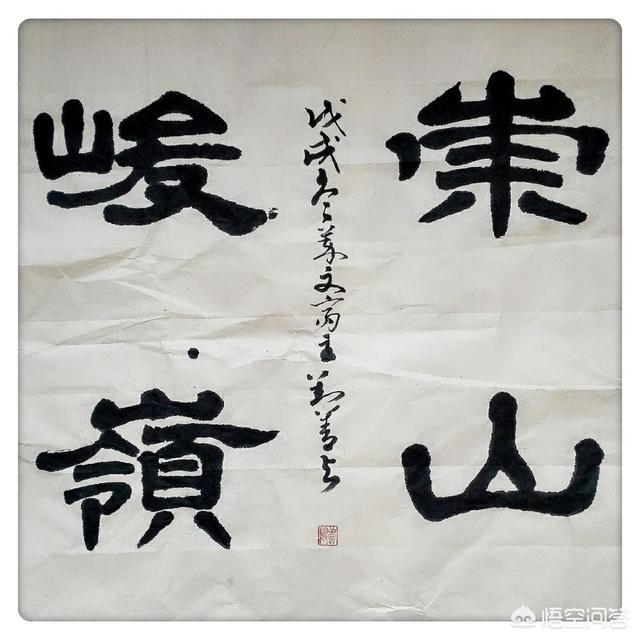 崇山
峻嶺
戊戌冬文主
悟空问答